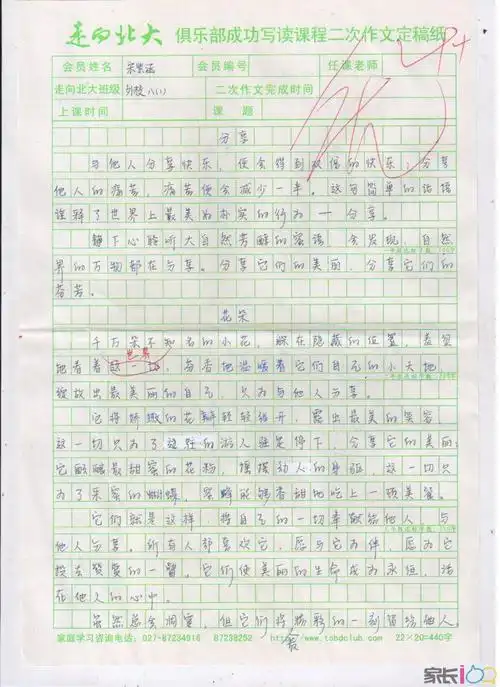 走向北大 俱乐部成功写读课程二次作文定稿纸
会员姓名 宋紫涵 会员编号 任课老师
走向北大班级 外校八(1) 二次作文完成时间
上课时间 课题
优 4+
分享
与他人分享快乐，便会得到双倍的快乐；分享
他人的痛苦，痛苦便会减少一半。这句简单的话语
诠释了世界上最美为朴实的行为——分享。
静下心聆听大自然芳醇的密语，会发现，自然
界的万物都在分享。分享它们的美丽，分享它们的
芬芳。
花朵
千万朵不知名的小花，躲在隐蔽的位置，含笑
地看着这一切，
世界
温暖着它们自己的小天地，
绽放出最美丽的自己，只为与他人分享。
它将娇嫩的花瓣轻轻绽开，露出最美的笑容，
这一切只为了过往的游人驻足停下，分享它的美丽；
它酝酿最甜蜜的花粉，摆摆动人的身躯，这一切只
为了采蜜的蝴蝶，蜜蜂能够香甜地吃上一顿美餐。
它们就是这样，将自己的一切奉献给他人，与
他人分享。所有人都喜欢它，愿与它为伴，愿为它
投去赞赏的一瞥。它们使美丽的生命成为永恒，活
在他人的心中。
虽然总会凋零，但它们将精彩的一刻留给他人，
家庭学习咨询电话：027-87234916 87238252 http://www.tobdclub.com 22×20=440字
家长100